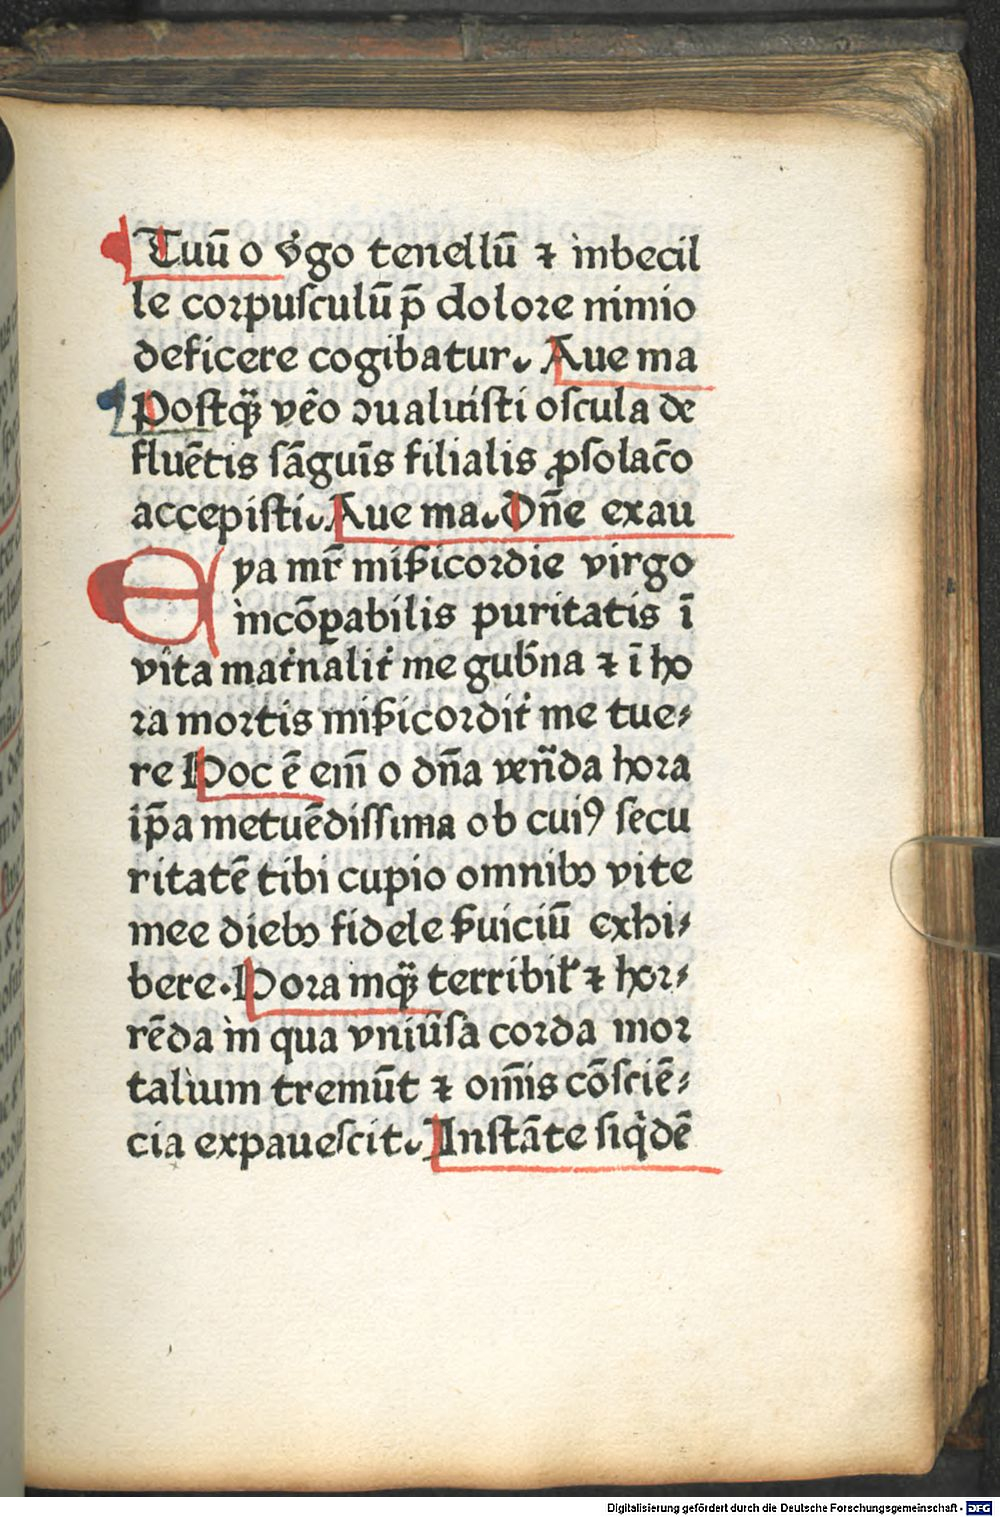 Tuū o v̾go tenellū ⁊ inbecil
le corpuſculū p̄ dolore nimio
deficere cogibatur. Aue ma
Poſtq̄̃ vēo ꝯualuiſti oſcula de
fluētis ſāguīs filialis ꝓſolac̄o
accepiſti. Aue ma. Dn̄e exau
Eya mr̄ miẜicordie virgo
incōꝑabilis puritatis ī
vita mat̾nalit̾ me gub̾na ⁊ ī ho
ra mortis miẜicordit̾ me tue⸗
re Hoc ē em̄ o dn̄a ven̄da hora
ip̄a metuēdiſſima ob cuiꝰ ſecu
ritatē tibi cupio omnibꝫ vite
mee diebꝫ fidele ẜuiciū exhi⸗
bere. Hora inq̄̃ terribil̾ ⁊ hor⸗
rēda in qua vniūſa corda mor
talium tremūt ⁊ om̄is cōſciē⸗
cia expaueſcit. Inſtāte ſiqͥdē
Digitalisierung gefördert durch die Deutsche Forschungsgemeinschaft - DFG